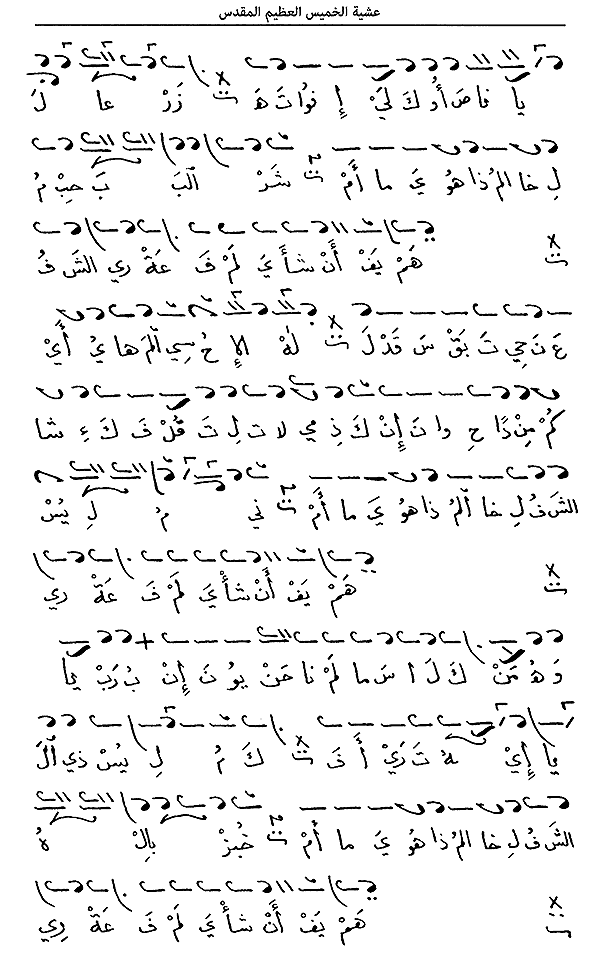 عشية الخميس العظيم المقدس
يا أو كَ لَيْ إِ فوا تَ هَ زَرْ عا
لِ خا المُ ذا هُو يَ ما أَمْ ت شَرْ البَ بَ حِبْ مُ
ت هَمْ يَفْ أَنْ شأْ يَ لَمْ فَ عَةْ ري الشَ فُ
عَ نَ حي تَ بَقْ سَ قَدْ لَ ت لَهُ الإِ حُ سي المَ ها يُ أَيْ
كُمْ مِنْ ذا حِ وا نَ إِنْ كَ ذِ مي لا تِ لِ تَ قُلْ فَ كَ ءِ شا
الشَ فُ لِ خا المُ ذا هُو يَ ما أَمْ ت ني مُ لِ يُسْ
ت هَمْ يَفْ أَنْ شأْ يَ لَمْ فَ عَةْ ري
وَ هُ مَنْ كَ لَ ا سَ ما لَمْ نا حَنْ يو نَ إِنْ بُ رَبْ يا
يا إِيْ هُ تَ رَيْ أَ فَ ت كَ مُ لِ يُسْ ذي
الشَ فُ لِ خا المُ ذا هُو يَ ما أَمْ ت خُبْزْ بِالْ هُ
ت هَمْ يَفْ أَنْ شأْ يَ لَمْ فَ عَةْ ري